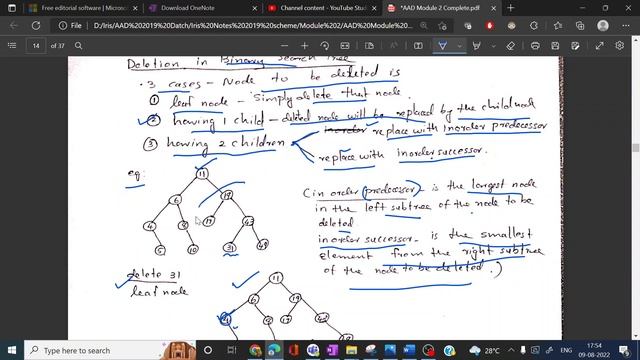 Free editorial software | Comp
Download OneNote
Download OneNote
*AAD Module 2 Complete.pdf
File
D:/Iris/AAD%202019%20Datch/Iris%20Notes%202019%20scheme/Module%202/AAD%20Module...
14 of 37
Deletion in Binary Search Tree
3 cases - Node to be deleted is
① leaf node - Simply delete that node.
② having 1 child - deleted node will be replaced by the child node
③ having 2 children
replace with inorder predecessor
replace with inorder successor.
eg:
11
6 19
4 8 17 43
5 10 31 49
(inorder predecessor is the largest node
in the left subtree of the node to be
deleted
inorder successor is the smallest
element from the right subtree
of the node to be deleted.)
delete 31
leaf node
11
6 19
4
Type here to search
28°C
ENG
17:54
09-08-2022